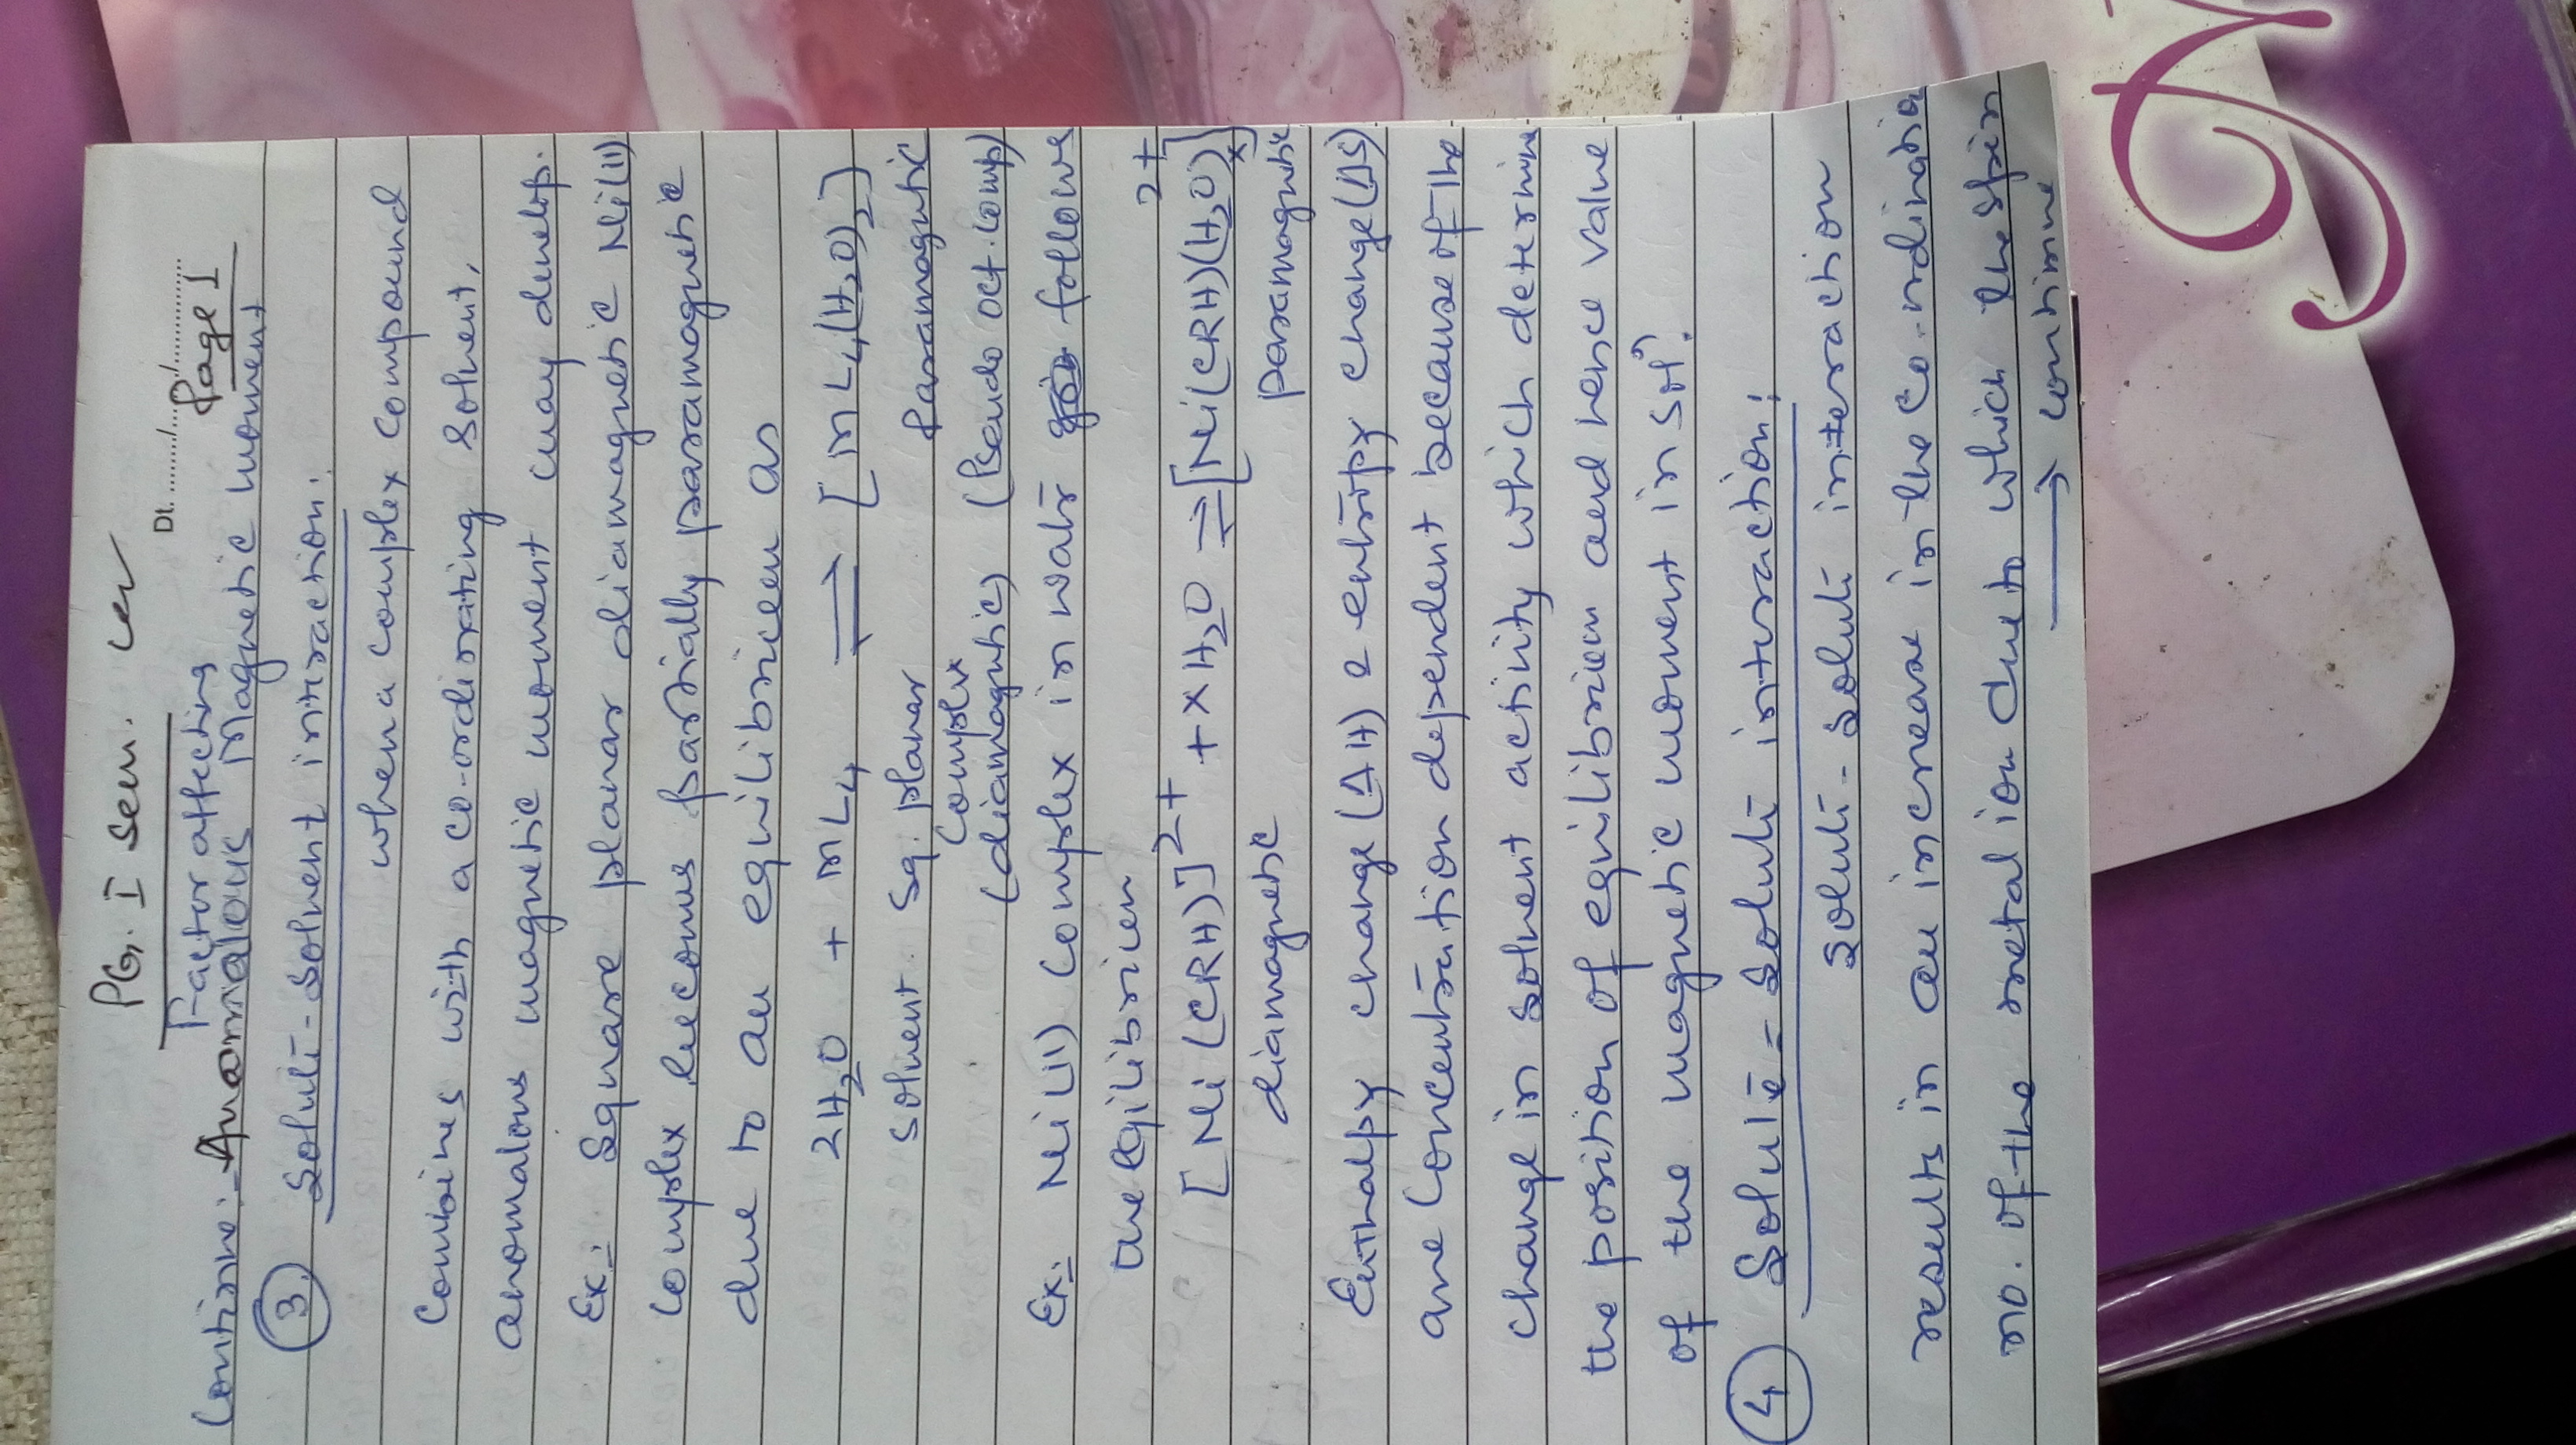 PG. I sem. Cer
Dt. ......../......../........
Page 1
Factor affecting
Continue :- Anomalous Magnetic moment
③ Solute-Solvent interaction:
when a complex compound
combines with a co-ordinating solvent,
anomalous magnetic moment may develop.
Ex:- Square planar diamagnetic Ni(II)
complex becomes partially paramagnetic
due to an equilibrium as
2H₂O + mL₄ ⇌ [mL₄(H₂O)₂]
solvent sq. planar Paramagnetic
complex
(diamagnetic) (Pseudo oct. comp)
Ex:- Ni(II) complex in water follows
the eqilibrium
[Ni(CRH)]²⁺ + xH₂O ⇌ [Ni(CRH)(H₂O)ₓ]²⁺
diamagnetic paramagnetic
Enthalpy change (ΔH) & entropy change (ΔS)
are concentration dependent because of the
change in solvent activity which determine
the position of equilibrium and hence value
of the magnetic moment in solⁿ.
④ Solute-Solute interaction:
Solute-Solute interaction
results in an increase in the co-ordination
no. of the metal ion due to which the spin
→ continue